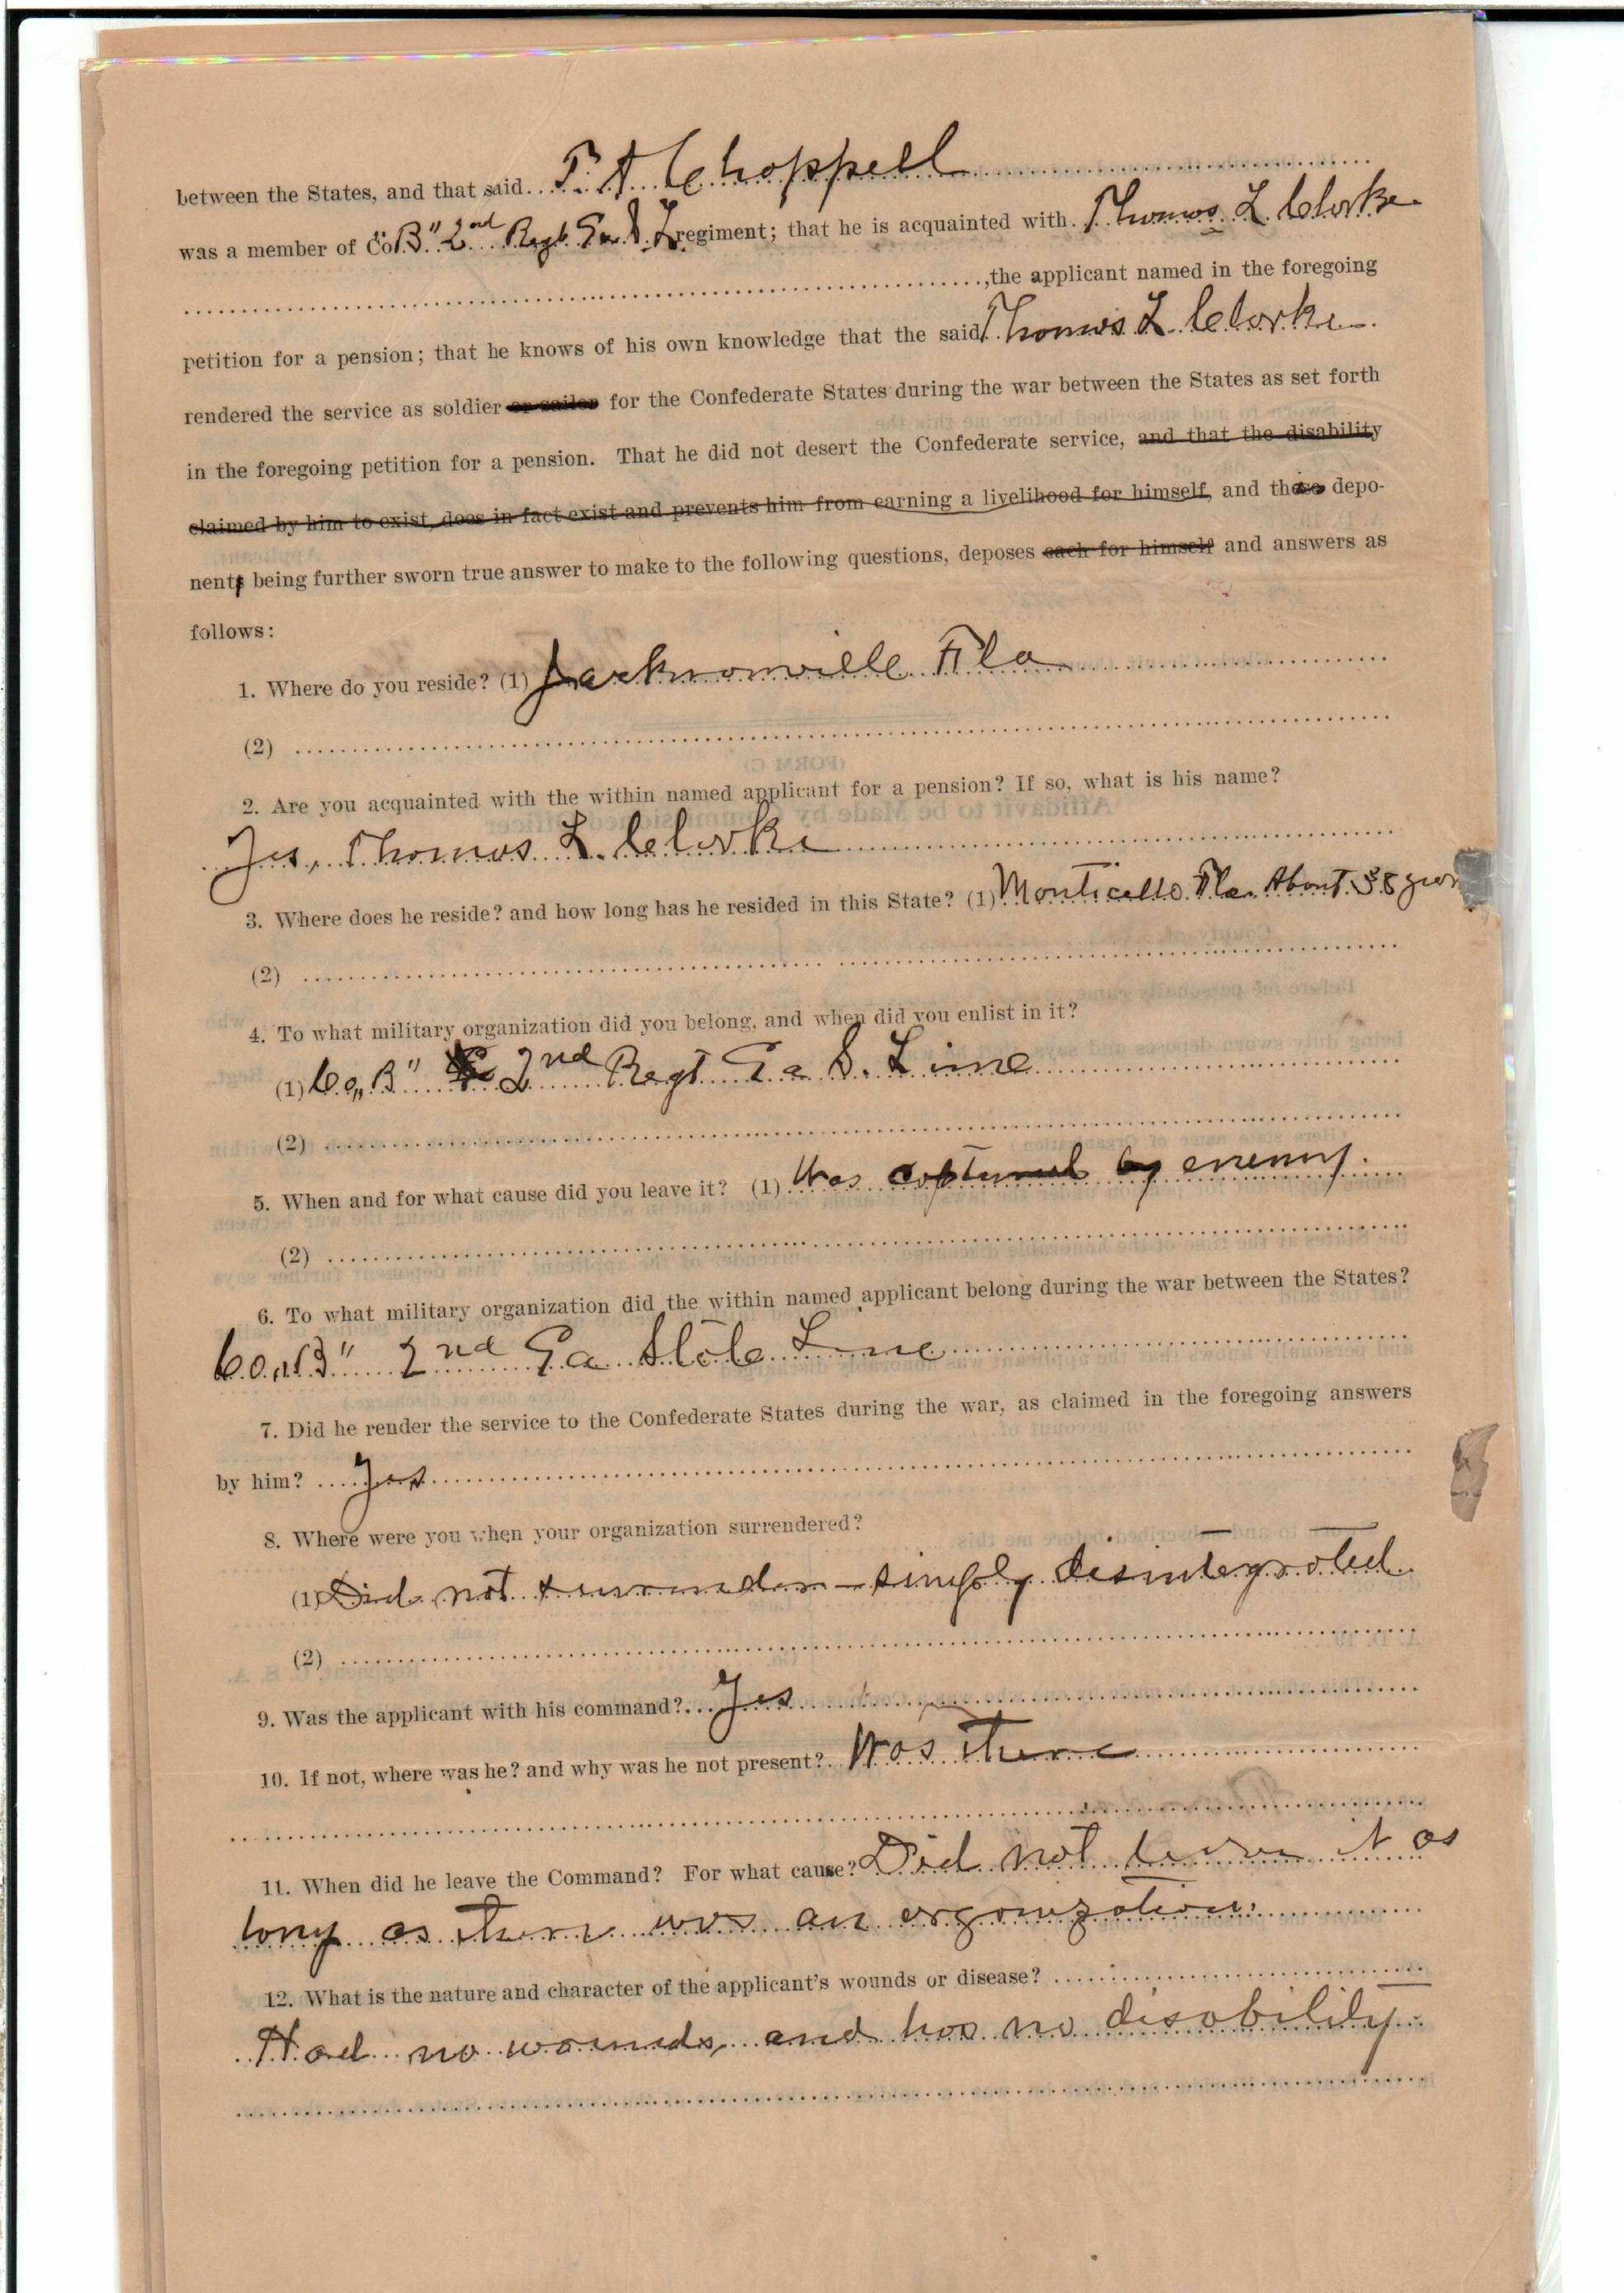 between the States, and that said T. A. Chappell
was a member of Co "B" 2nd Regt. Ga. S. L. regiment; that he is acquainted with Thomas L. Clarke
, the applicant named in the foregoing
petition for a pension; that he knows of his own knowledge that the said Thomas L Clarke
rendered the service as soldier or sailor for the Confederate States during the war between the States as set forth
in the foregoing petition for a pension. That he did not desert the Confederate service, and that the disability
claimed by him to exist, does in fact exist and prevents him from earning a livelihood for himself, and these depo-
nents being further sworn true answer to make to the following questions, deposes each for himself and answers as
follows:
1. Where do you reside? (1) Jacksonville Fla
(2)
2. Are you acquainted with the within named applicant for a pension? If so, what is his name?
Yes, Thomas L. Clarke
3. Where does he reside? and how long has he resided in this State? (1) Monticello Fla. About 38
(2)
4. To what military organization did you belong, and when did you enlist in it?
(1) Co "B" 2nd Regt Ga S. Line
(2)
5. When and for what cause did you leave it? (1) Was captured by enemy.
(2)
6. To what military organization did the within named applicant belong during the war between the States?
Co. "B" 2nd Ga State Line
7. Did he render the service to the Confederate States during the war, as claimed in the foregoing answers
by him? Yes
8. Where were you when your organization surrendered?
(1) Did not surrender - simply disintegrated.
(2)
9. Was the applicant with his command? Yes
10. If not, where was he? and why was he not present? Was there
11. When did he leave the Command? For what cause? Did not leave it as
long as there was an organization.
12. What is the nature and character of the applicant's wounds or disease?
Had no wounds, and has no disability.